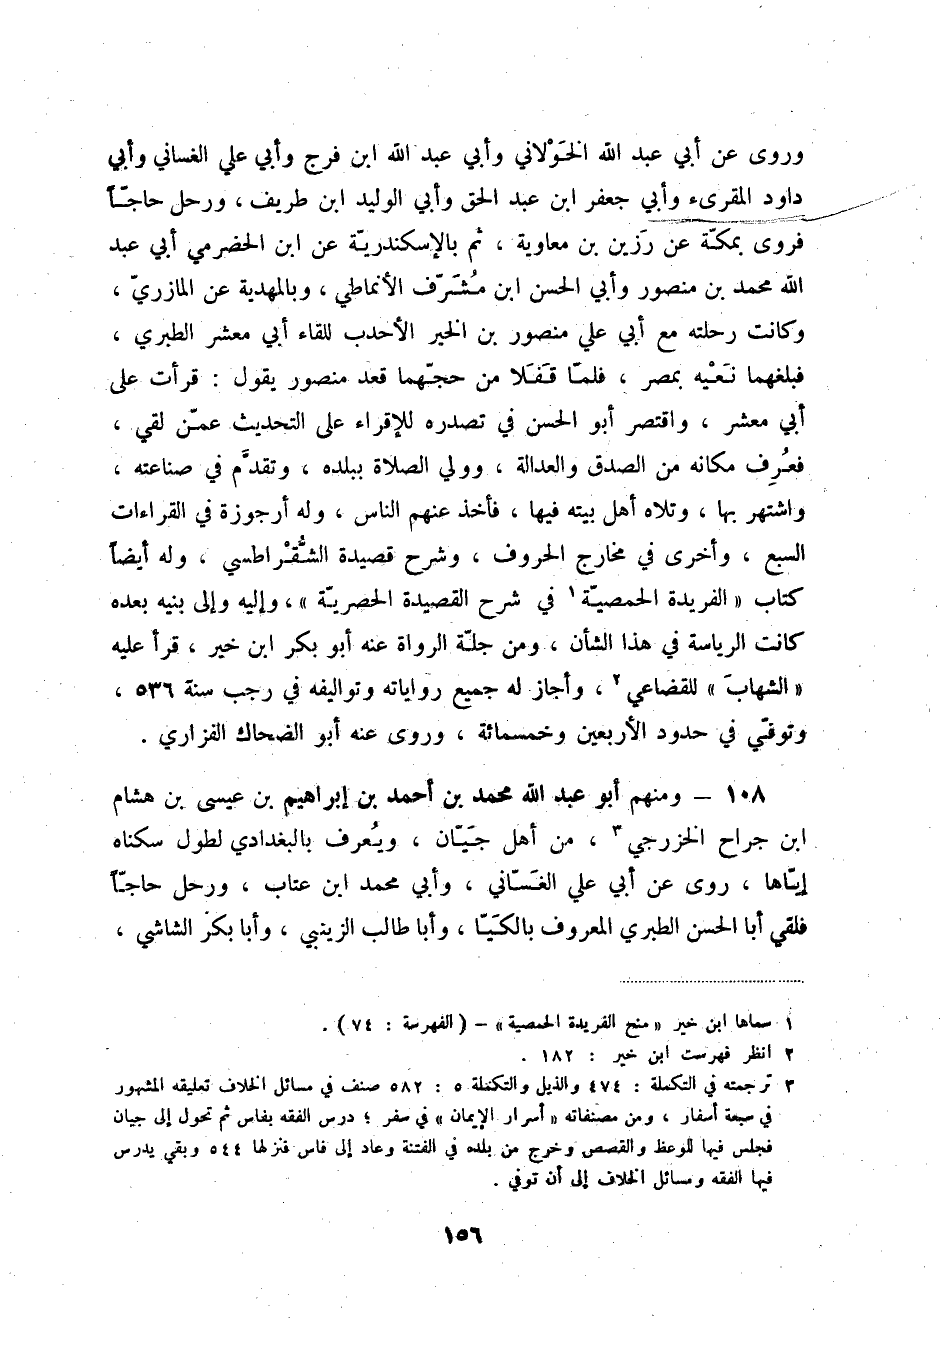 وروى عن أبي عبد الله الخَوْلاني وأبي عبد الله ابن فرج وأبي علي الغساني وأبي
داود المقرىء وأبي جعفر ابن عبد الحق وأبي الوليد ابن طريف ، ورحل حاجّاً
فروى بمكّة عن رَزين بن معاوية ، ثم بالإسكندريّة عن ابن الحضرمي أبي عبد
الله محمد بن منصور وأبي الحسن ابن مُشَرّف الأنماطي ، وبالمهدية عن المازريّ ،
وكانت رحلته مع أبي علي منصور بن الخير الأحدب للقاء أبي معشر الطبري ،
فبلغهما نَعْيه بمصر ، فلمّا قَفَلا من حجّهما قعد منصور يقول : قرأت على
أبي معشر ، واقتصر أبو الحسن في تصدره للإقراء على التحديث عمّن لقي ،
فعُرِف مكانه من الصدق والعدالة ، وولي الصلاة ببلده ، وتقدَّم في صناعته ،
واشتهر بها ، وتلاه أهل بيته فيها ، فأخذ عنهم الناس ، وله أرجوزة في القراءات
السبع ، وأخرى في مخارج الحروف ، وشرح قصيدة الشُّقْراطسي ، وله أيضاً
كتاب « الفريدة الحمصيّة ١ في شرح القصيدة الحصريّة » ، وإليه وإلى بنيه بعده
كانت الرياسة في هذا الشأن ، ومن جلّة الرواة عنه أبو بكر ابن خير ، قرأ عليه
« الشهابَ » للقضاعي ٢ ، وأجاز له جميع رواياته وتواليفه في رجب سنة ٥٣٦ ،
وتوفّي في حدود الأربعين وخمسمائة ، وروى عنه أبو الضحاك الفزاري .
١٠٨ – ومنهم أبو عبد الله محمد بن أحمد بن إبراهيم بن عيسى بن هشام
ابن جراح الخزرجي ٣ ، من أهل جَيّان ، ويُعرف بالبغدادي لطول سكناه
إيّاها ، روى عن أبي علي الغَسّاني ، وأبي محمد ابن عتاب ، ورحل حاجّاً
فلقي أبا الحسن الطبري المعروف بالكَيّا ، وأبا طالب الزينبي ، وأبا بكر الشاشي ،
١ سماها ابن خير « منح الفريدة الحمصية » – ( الفهرسة : ٧٤ ) .
٢ انظر فهرست ابن خير : ١٨٢ .
٣ ترجمته في التكملة : ٤٧٤ والذيل والتكملة ٥ : ٥٨٢ صنف في مسائل الخلاف تعليقه المشهور
في سبعة أسفار ، ومن مصنفاته « أسرار الإيمان » في سفر ؛ درس الفقه بفاس ثم تحول إلى جيان
فجلس فيها للوعظ والقصص وخرج من بلده في الفتنة وعاد إلى فاس فنزلها ٥٤٤ وبقي يدرس
فيها الفقه ومسائل الخلاف إلى أن توفي .
١٥٦